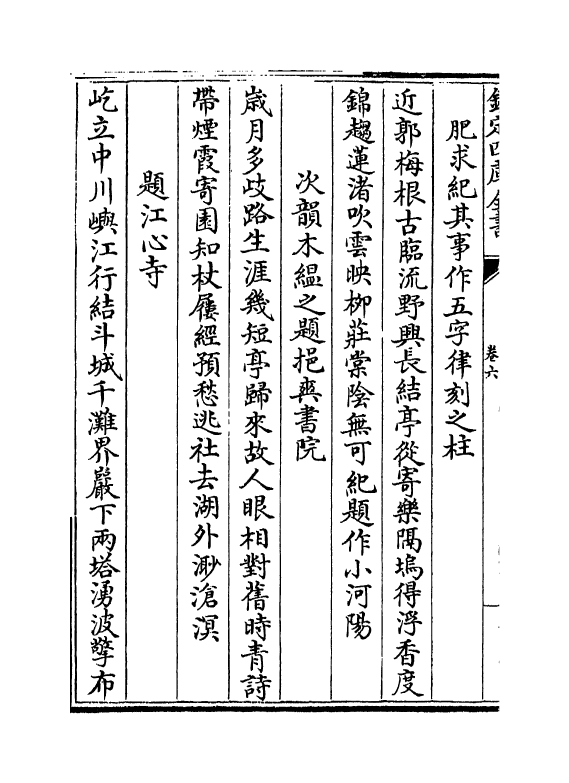 欽定四庫全書
卷六
肥求紀其事作五字律刻之柱
近郭梅根古臨流野興長結亭從寄樂隔塢得浮香度
錦趨蓮渚吹雲映柳莊棠陰無可紀題作小河陽
次韻木縕之題挹爽書院
歲月多歧路生涯幾短亭歸來故人眼相對舊時青詩
帶煙霞寄園知杖屨經預愁逃社去湖外渺滄溟
題江心寺
屹立中川嶼江行結斗城千灘界嚴下兩塔湧波擎布